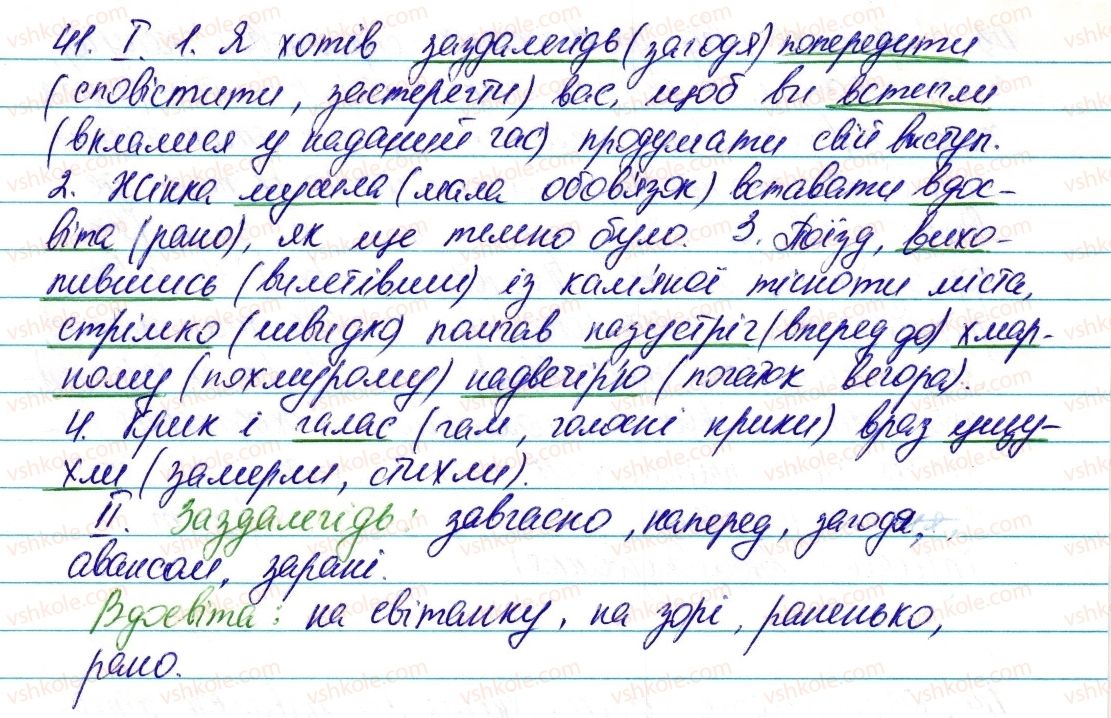 41. І. 1. Я хотів заздалегідь (загодя) попередити
(сповістити, застерегти) вас, щоб ви встигли
(вклалися у наданий час) продумати свій виступ.
2. Жінка мусила (мала обов'язок) вставати вдос-
віта (рано), як ще темно було. 3. Поїзд, вихо-
пившись (вилетівши) із кам'яної тісноти міста,
стрімко (швидко) помчав назустріч (вперед до) хмар-
ному (похмурому) надвечір'ю (початок вечора).
4. Крик і галас (гам, голосні крики) враз ущу-
хли (замерли, стихли).
ІІ. Заздалегідь: завчасно, наперед, загодя,
авансом, зарані.
Вдосвіта: на світанку, на зорі, раненько,
рано.